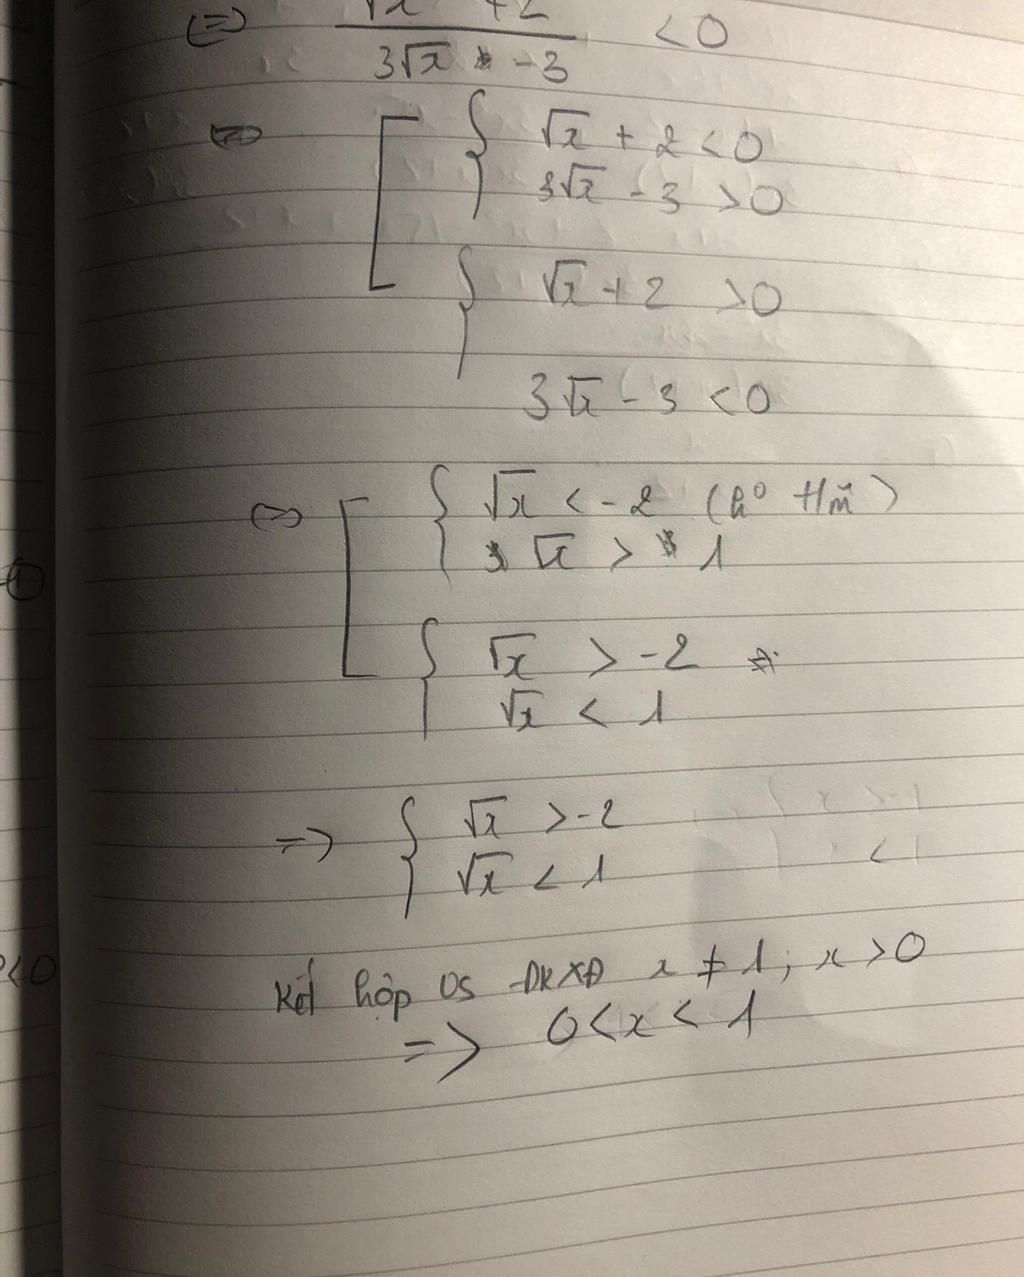 (=) √x +2 < 0
3√x -3
(=) √x + 2 < 0
3√x - 3 > 0
√x + 2 > 0
3√x - 3 < 0
(=) √x < -2 (k° t/m̃)
√x > 1
√x > -2
√x < 1
=> √x > -2
√x < 1
Kết hợp vs ĐKXĐ x ≠ 1; x > 0
=> 0 < x < 1
<0